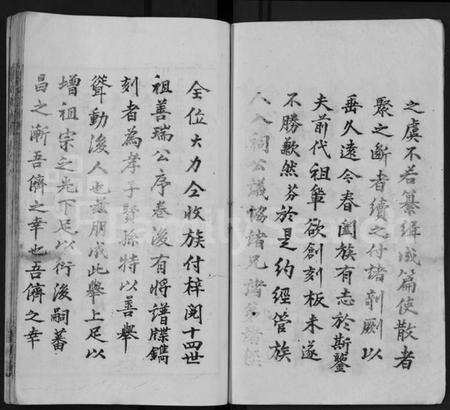 之虞不若纂緝成篇使散者
聚之斷者續之付諸剞劂以
垂久遠今春闔族有志於斯鑒
夫前代祖輩欲創刻板未遂
不勝歉然芬於是約經管族
人入祠公議協諸兄諸
全位大力仝收族付梓閱十四世
祖善瑞公序卷後有將譜牒鐫
刻者為孝子賢孫特以善舉
聳動後人也茲朋成此舉上足以
增祖宗之光下足以衍後嗣蕃
昌之漸吾儕之幸也吾儕之幸